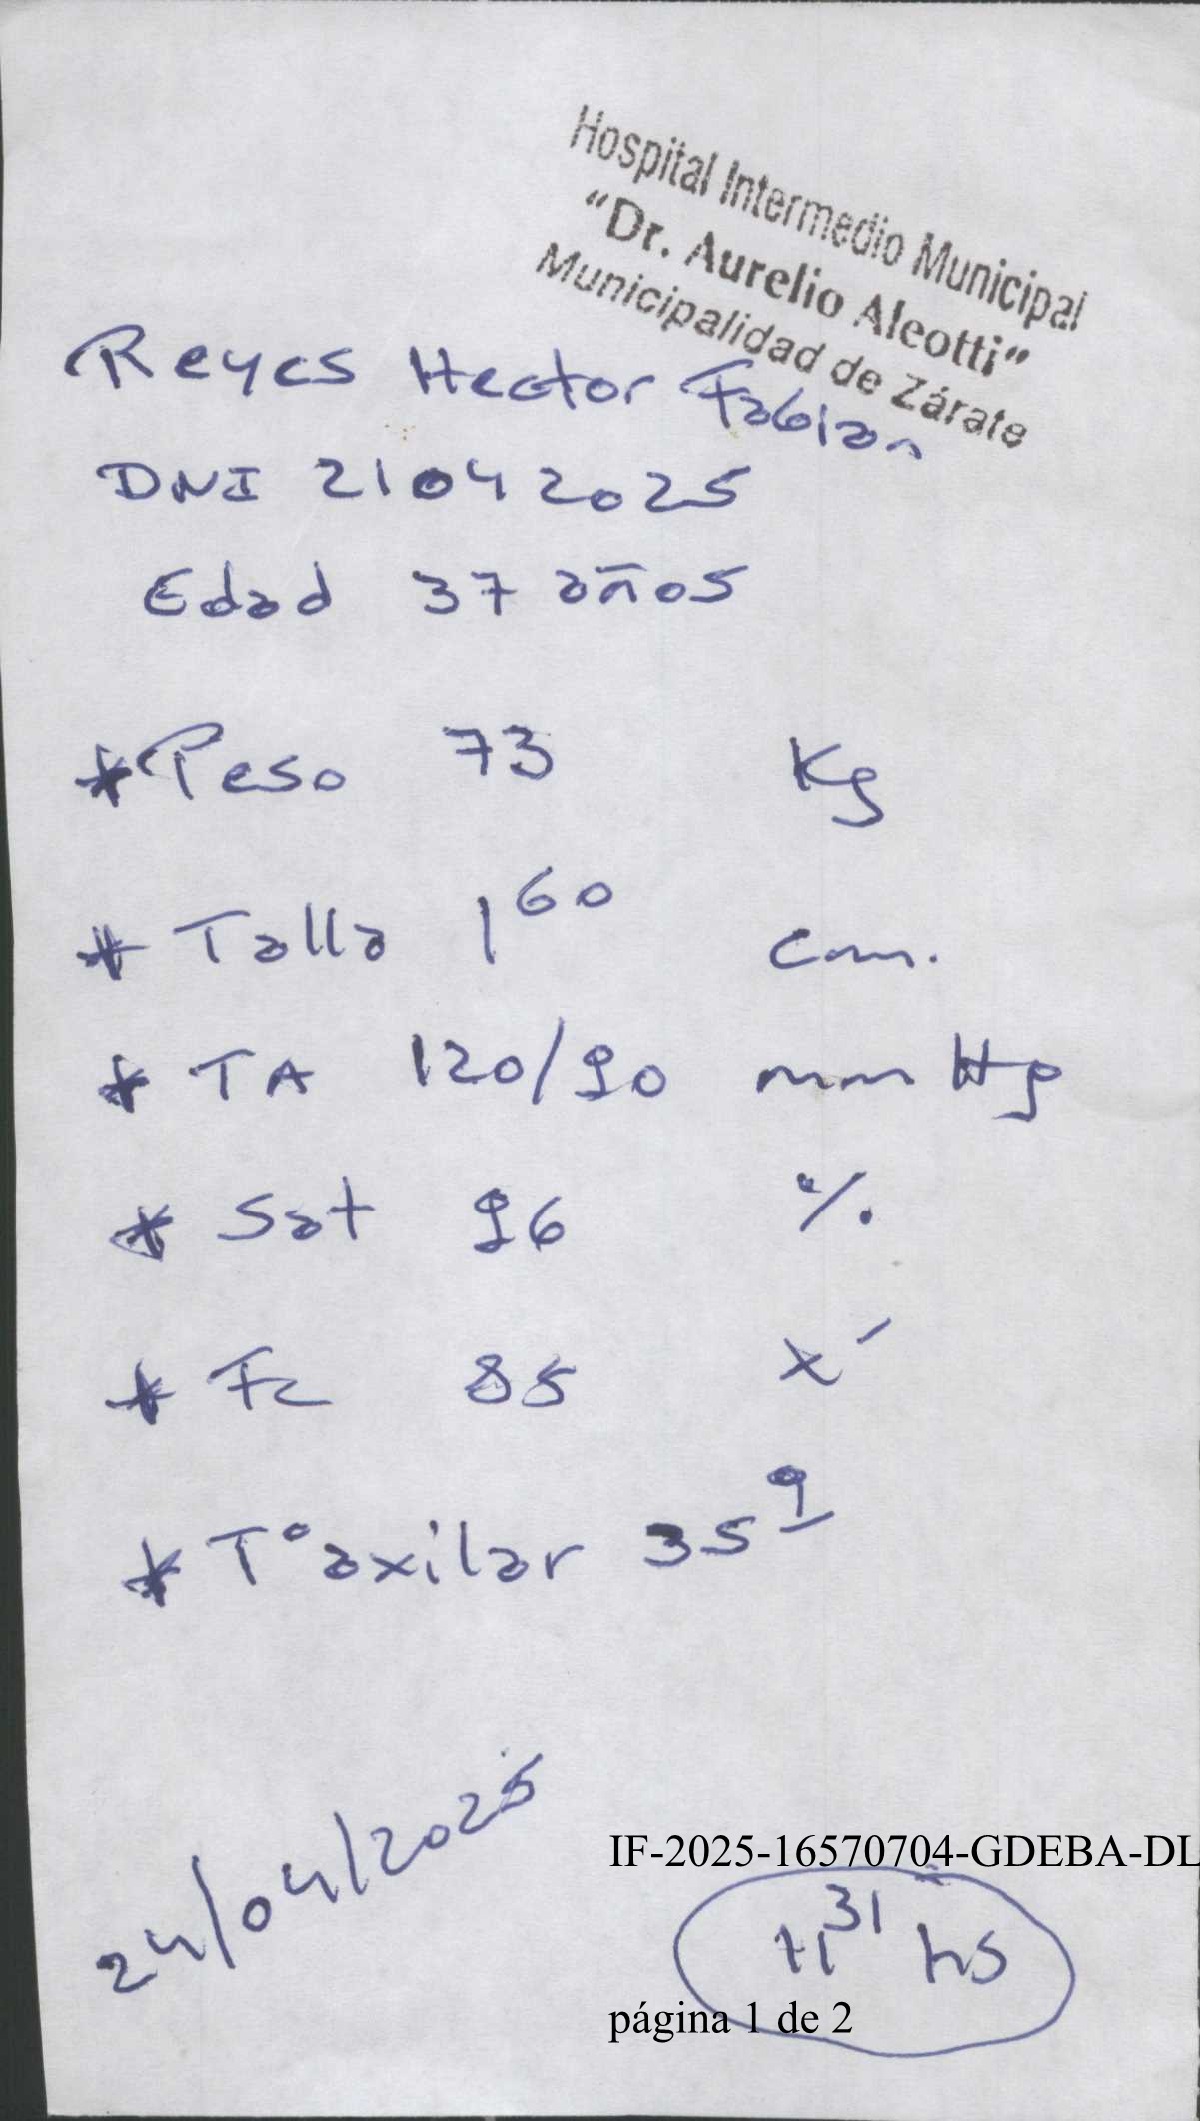 Hospital Intermedio Municipal
"Dr. Aurelio Aleotti"
Municipalidad de Zárate
Reyes Hector Fabian
DNI 21042025
Edad 37 años
* Peso 73 Kg
* Talla 1 60 cm.
* TA 120/90 mmHg
* Sat 96 %
* Fc 85 x´
* T° axilar 35 9
24/04/2025
IF-2025-16570704-GDEBA-DL
11 31 hs
página 1 de 2